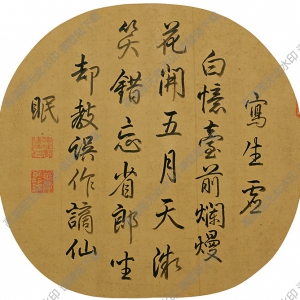 寫生虛
白憶臺前爛熳
花開五月天漵
笑錯忘省郎坐
却教誤作謫仙
眠